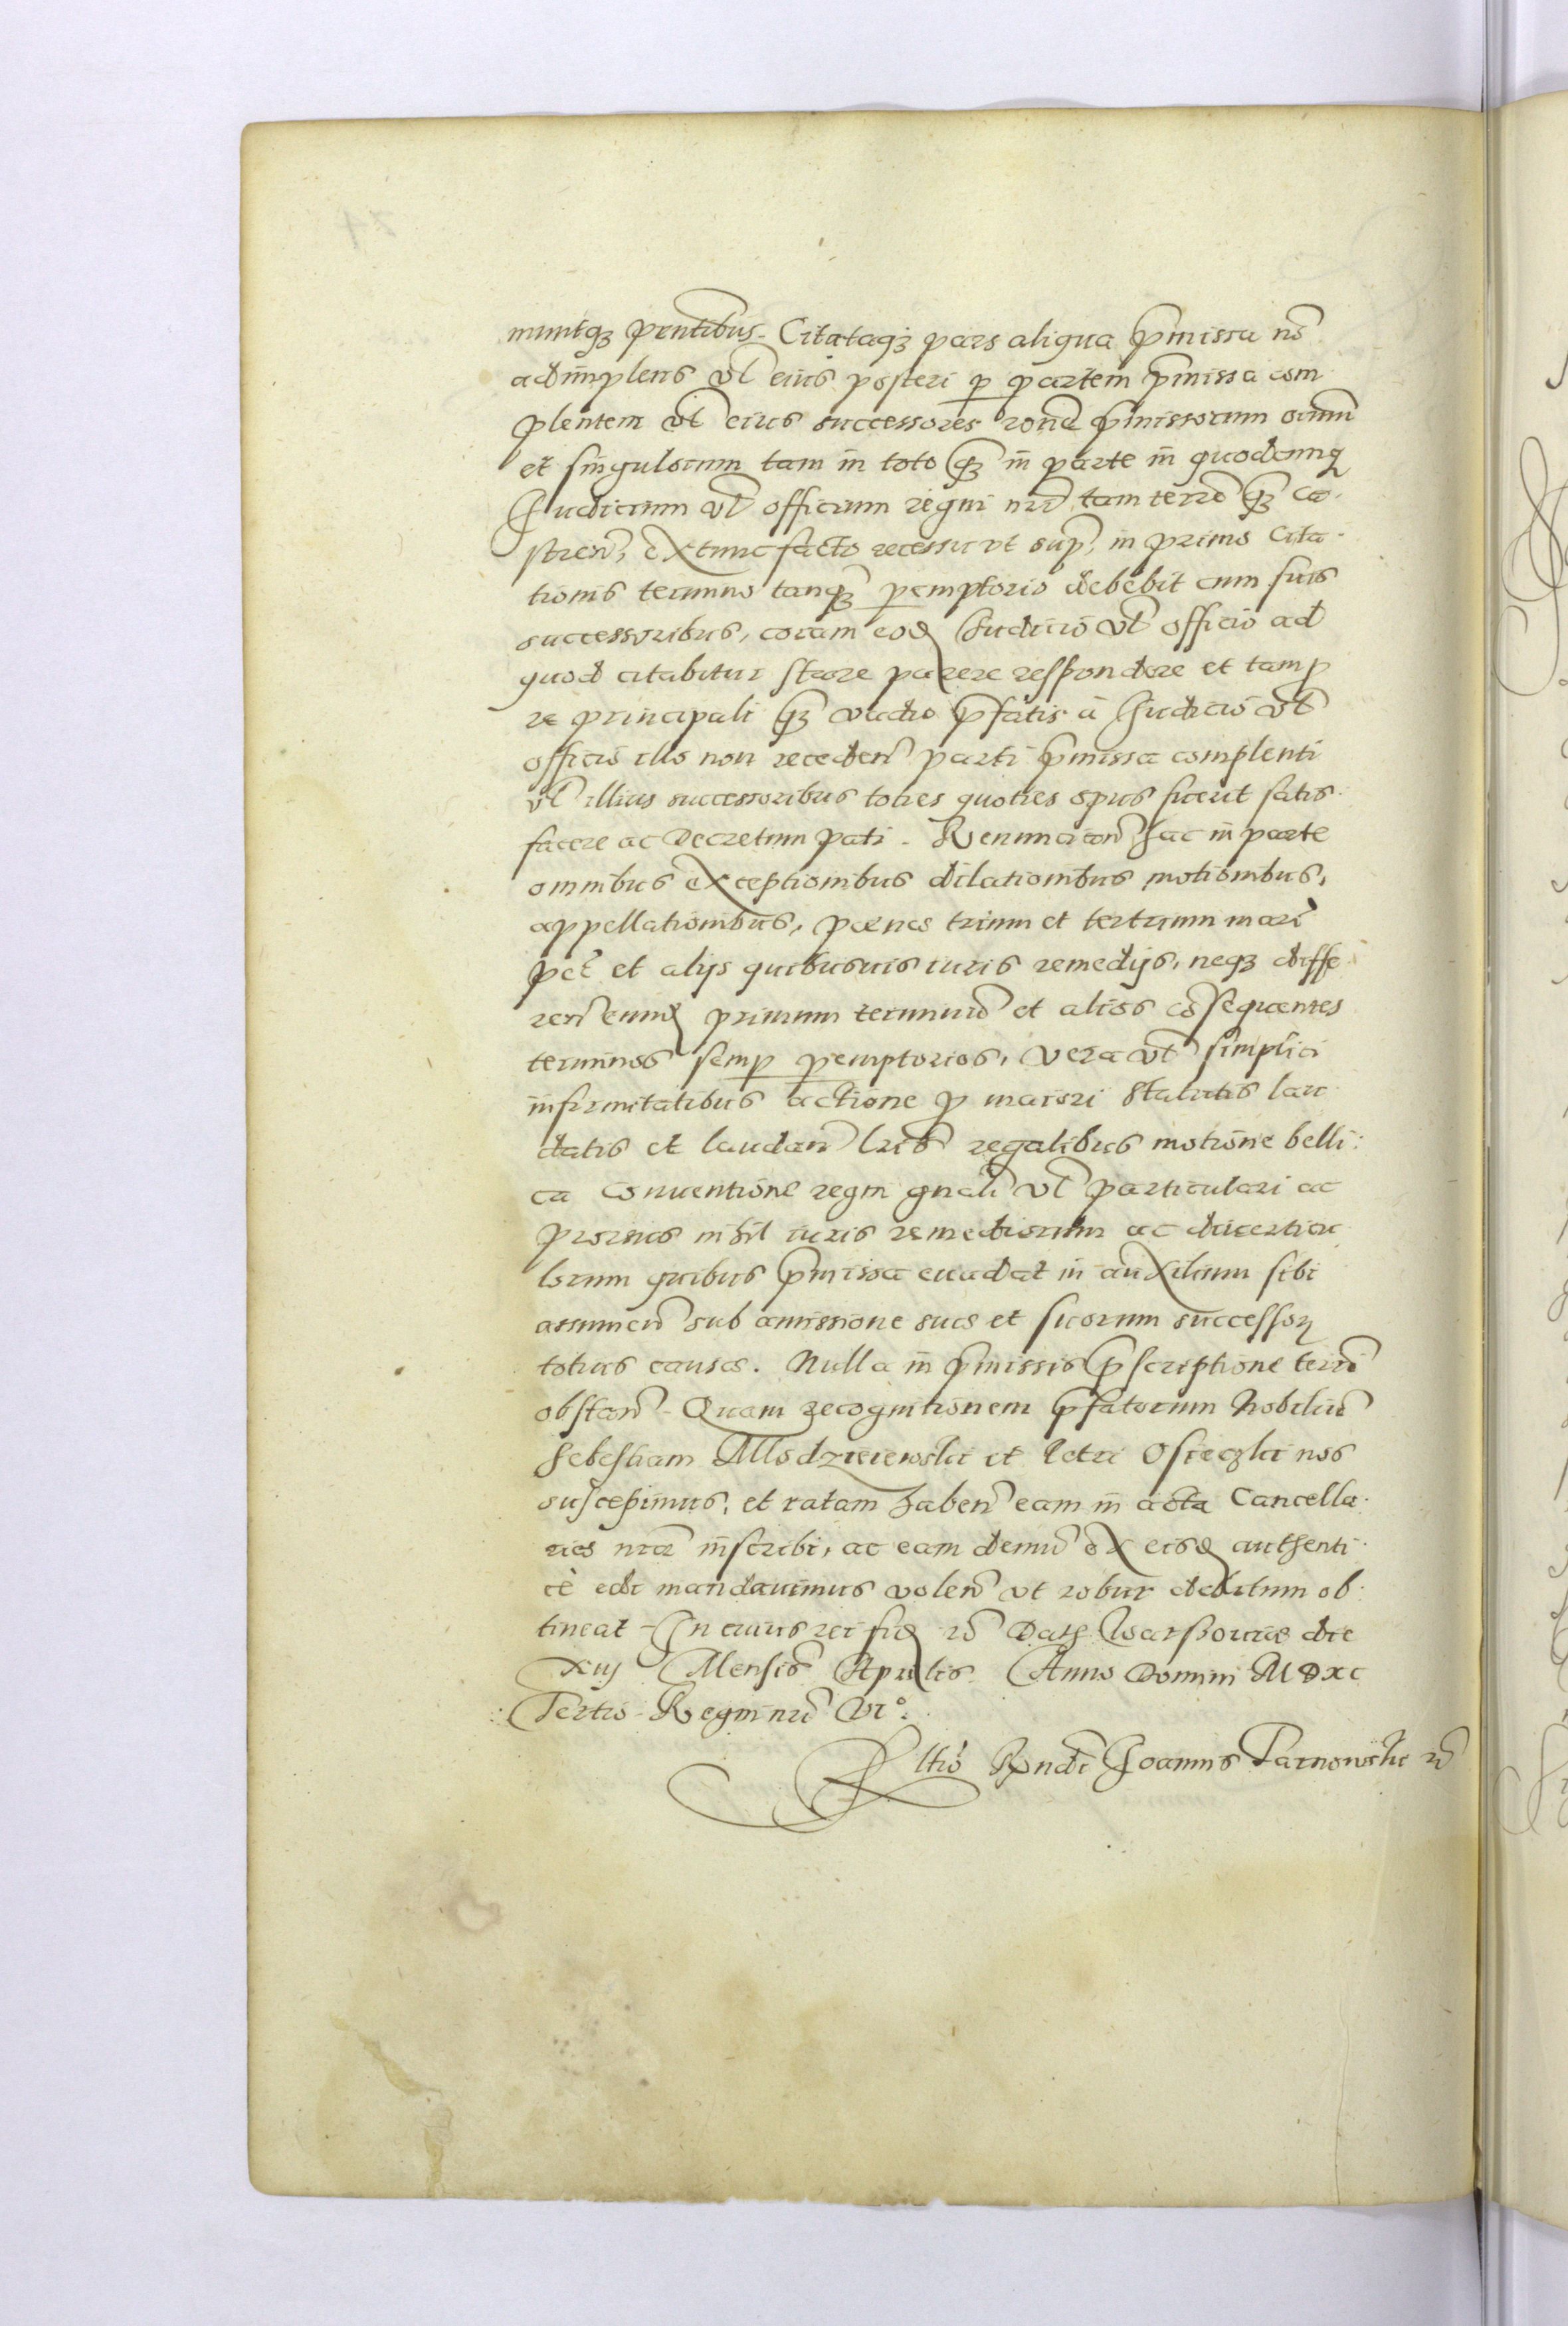 muntqꝫ pntibus. Citataqꝫ pars aliqua pmissa nō
adimplens vl eius posteri p partem pmissa com
plentem vl eius successores rone pmissorum omniū
et singulorum tam in toto qꝫ in parte in quodcunqꝫ
Iudicium vl officium regni nri tam terre qꝫ ca
stren, extunc facto recessu vt supᵃ, in primo cita
tionis termino tanqꝫ pemptorio debebit cum suis
successoribus, coram eod Iudicio vl officio ad
quod citabitur stare parere respondere et tam p
re principali qꝫ vadio pfatis à Iudicio vl
officio illo non receden parti pmissa complenti
vl illius successoribus toties quoties opus fuerit satis
facere ac Decretum pati. Renuncian hac in parte
omnibus exceptionibus dilationibus motionibus,
appellationibus, pænas trium et tertium mari
pet et alijs quibusuis iuris remedijs, neqꝫ diffe
ren eund primum terminū et alios cōsequentes
terminos semp pemptorios, vera vl simplici
infirmitatibus actione p maiori Statutis lau
datis et laudan lris regalibus motione belli:
ca conuentione regni gnali vl particulari ac
prorsus nihil iuris remediorum ac diuerticu
lorum quibus pmissa euadat in auxilium sibi
assumen sub amissione suæ et suorum successorꝝ
totius causæ. Nulla in pmissis pscriptione terri
obstan. Quam recognitionem pfatorum Nobiliū
Sebestiani Mlodzieiewski et Petri Osieczki nos
suscepimus, et ratam haben eam in acta Cancella
riæ nræ inscribi, ac eam demū ex eisd authenti
cè edi mandauimus volen vt robur debitum ob
tineat. In cuius rei fid rc Datꝫ Warssouiæ die
xiij Mensis Aprilis. Anno Domini MDXC
Tertio. Regni nri vi°.
Rltio Rrndi Ioannis Tarnowski rc